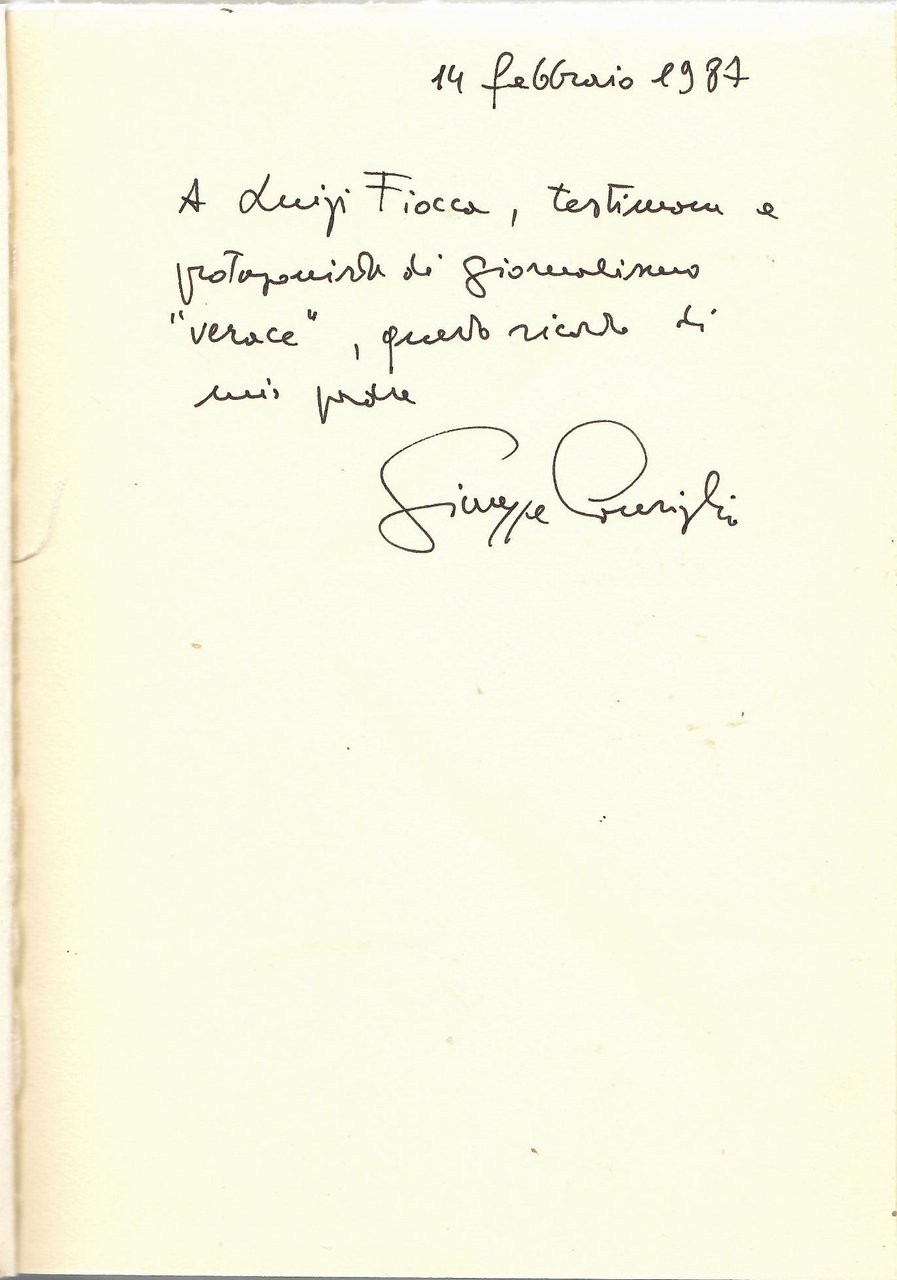 14 febbraio 1987
A Luigi Fiocca, testimone e
protagonista di giornalismo
"verace", questo ricordo di
mio padre
Giuseppe Consiglio